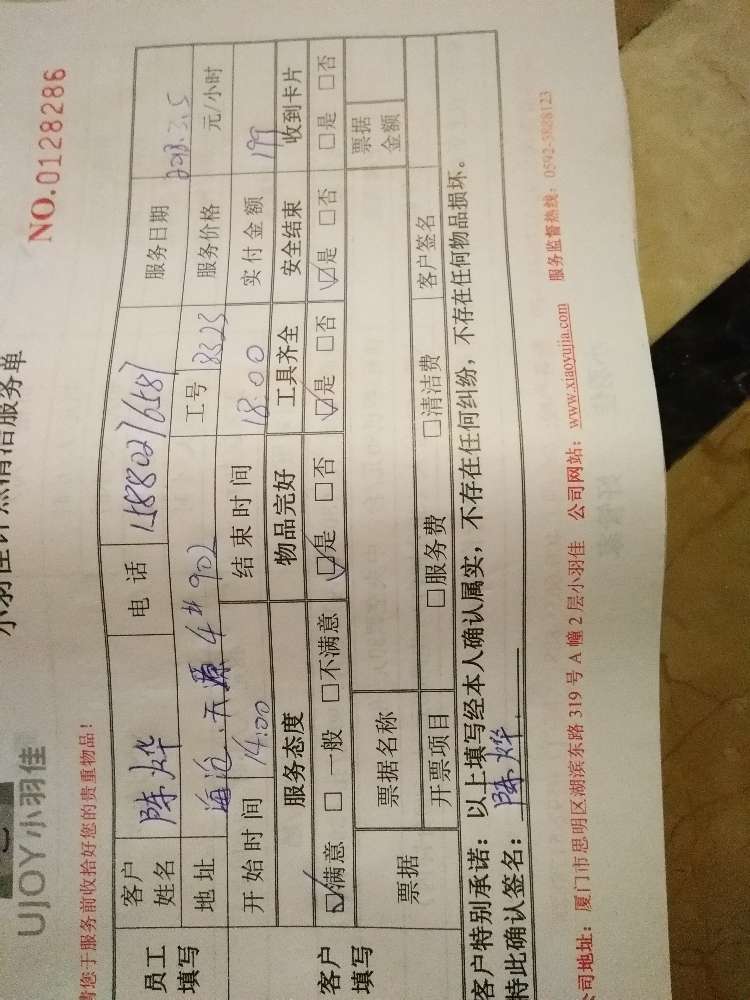 UJOY小羽佳
小羽佳计点清洁服务单
NO.0128286
请您于服务前收拾好您的贵重物品！
员工填写
客户姓名 陈烨 电话 服务日期 2018.3.5
地址 海沧、天源4#902 工号 8323 服务价格 元/小时
开始时间 14:00 结束时间 18:00 实付金额 199
客户填写
服务态度 物品完好 工具齐全 安全结束 收到卡片
☑满意 □一般 □不满意 ☑是 □否 ☑是 □否 ☑是 □否 □是 □否
票据 票据名称 票据金额
开票项目 □服务费 □清洁费 客户签名
客户特别承诺：以上填写经本人确认属实，不存在任何纠纷，不存在任何物品损坏。
特此确认签名：陈烨
公司地址：厦门市思明区湖滨东路319号A幢2层小羽佳 公司网站：www.xiaoyujia.com 服务监督热线：0592-5828123